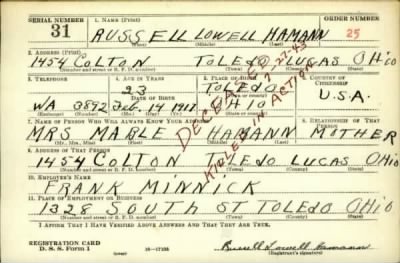 SERIAL NUMBER 1. NAME (Print) ORDER NUMBER
31 RUSSELL LOWELL HAMANN 25
(First) (Middle) (Last)
2. ADDRESS (Print)
1454 COLTON TOLEDO LUCAS OHIO
(Number and street or R. F. D. number) (Town) (County) (State)
3. TELEPHONE 4. AGE IN YEARS 5. PLACE OF BIRTH 6. COUNTRY OF CITIZENSHIP
23 TOLEDO
DATE OF BIRTH
WA 3892 Feb 14 1917 OHIO U.S.A.
(Exchange) (Number) (Mo.) (Day) (Yr.) (State or country)
DECEASED 7-27-43
KILLED IN ACTION
7. NAME OF PERSON WHO WILL ALWAYS KNOW YOUR ADDRESS 8. RELATIONSHIP OF THAT PERSON
MRS MABLE HAMANN MOTHER
(Mr., Mrs., Miss) (First) (Middle) (Last)
9. ADDRESS OF THAT PERSON
1454 COLTON TOLEDO LUCAS OHIO
(Number and street or R. F. D. number) (Town) (County) (State)
10. EMPLOYER'S NAME
FRANK MINNICK
11. PLACE OF EMPLOYMENT OR BUSINESS
1328 SOUTH ST TOLEDO OHIO
(Number and street or R. F. D. number) (Town) (County) (State)
I AFFIRM THAT I HAVE VERIFIED ABOVE ANSWERS AND THAT THEY ARE TRUE.
REGISTRATION CARD
D. S. S. Form 1 (over) 16—17105 Russell Lowell Hamann
(Registrant's signature)